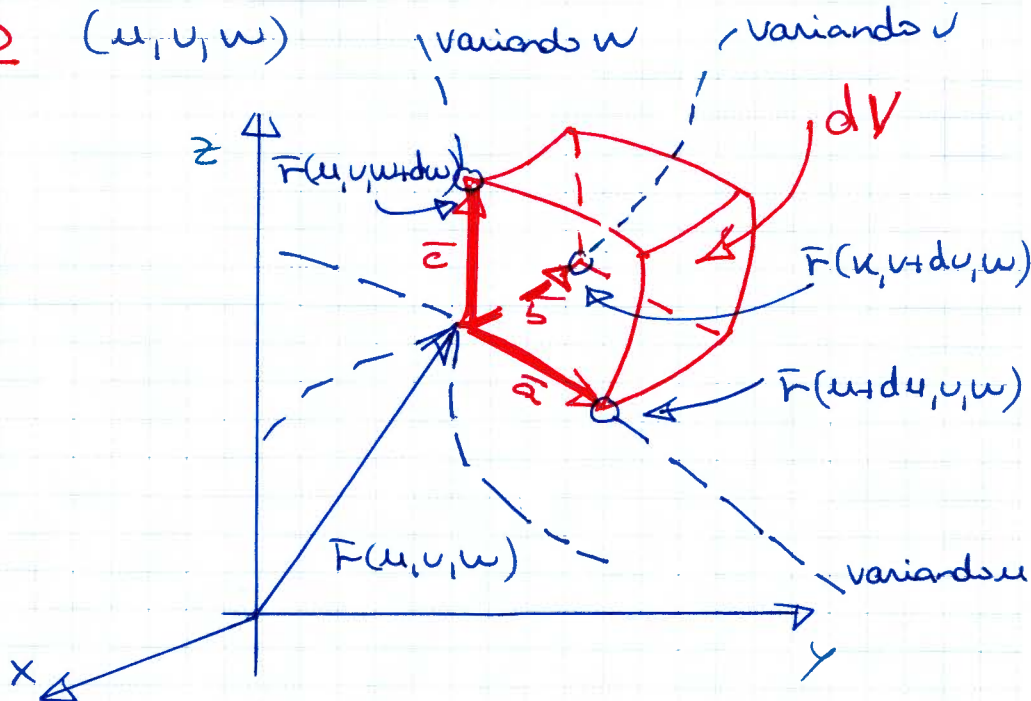 (u,v,w)
variando w
variando v
dV
z
r̄(u,v,w+dw)
c̄
r̄(u,v+dv,w)
b̄
ā
r̄(u+du,v,w)
r̄(u,v,w)
variando u
x
y